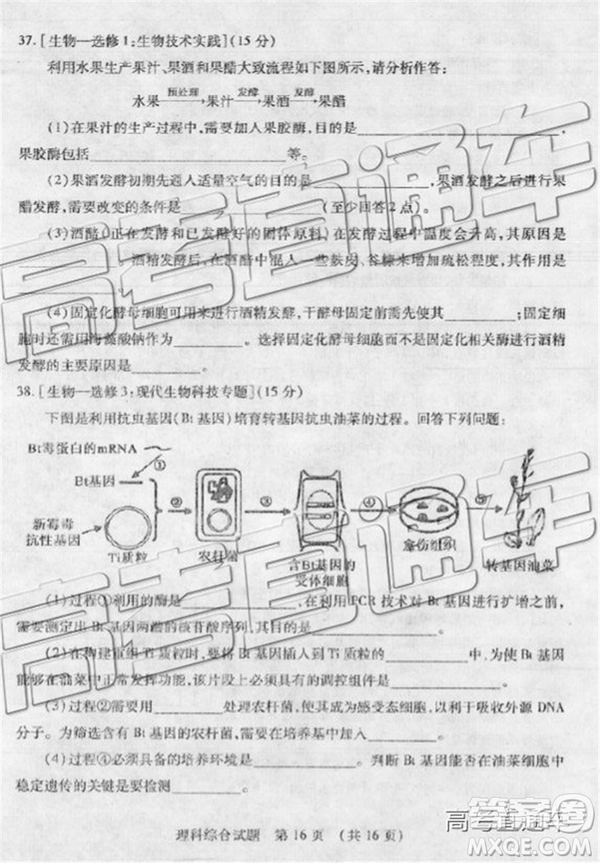 37.[生物—选修1:生物技术实践](15分)
利用水果生产果汁、果酒和果醋大致流程如下图所示,请分析作答:
水果 预处理 果汁 发酵 果酒 发酵 果醋
(1)在果汁的生产过程中,需要加入果胶酶,目的是
果胶酶包括 等。
(2)果酒发酵初期先通入适量空气的目的是 。果酒发酵之后进行果
醋发酵,需要改变的条件是 (至少回答2点)。
(3)酒醅(正在发酵和已发酵好的固体原料)在发酵过程中温度会升高,其原因
酒精发酵后在酒醅中混入一些麸皮、谷糠来增加疏松程度,其目的是
(4)固定化酵母细胞可用来进行酒精发酵,干酵母固定前需先使其 ;固定细
胞时还需用海藻酸钠作为 。选择固定化酵母而不是固定化相关酶进行酒精
发酵的主要原因是 。
38.[生物—选修3:现代生物科技专题](15分)
下图是利用抗虫基因(Bt基因)培育转基因抗虫油菜的过程。回答下列问题:
Bt毒蛋白的mRNA
①
Bt基因
新霉毒
抗性基因
Ti质粒
②
农杆菌
③
含Bt基因的
受体细胞
④
愈伤组织
转基因油菜
(1)过程①利用的酶是 ,在利用PCR技术对Bt基因进行扩增之前,
需要测定出Bt基因两端的核苷酸序列,其目的是 。
(2)在构建重组Ti质粒时,需将Bt基因插入到Ti质粒的 中,为使Bt基因
能够在油菜中正常发挥功能,该片段上的调控组件是 。
(3)过程②需要用 处理农杆菌,使其成为感受态细胞,以利于吸收外源DNA
分子。为筛选含有Bt基因的农杆菌,需要在培养基中添加 。
(4)过程④必须具备的培养环境是 。判断Bt基因能否在油菜细胞中
稳定遗传的关键是要进行 。
理科综合试题 第16页 (共16页)
高考直通车
高考直通车
高考直通车
答案圈
MXQE.COM